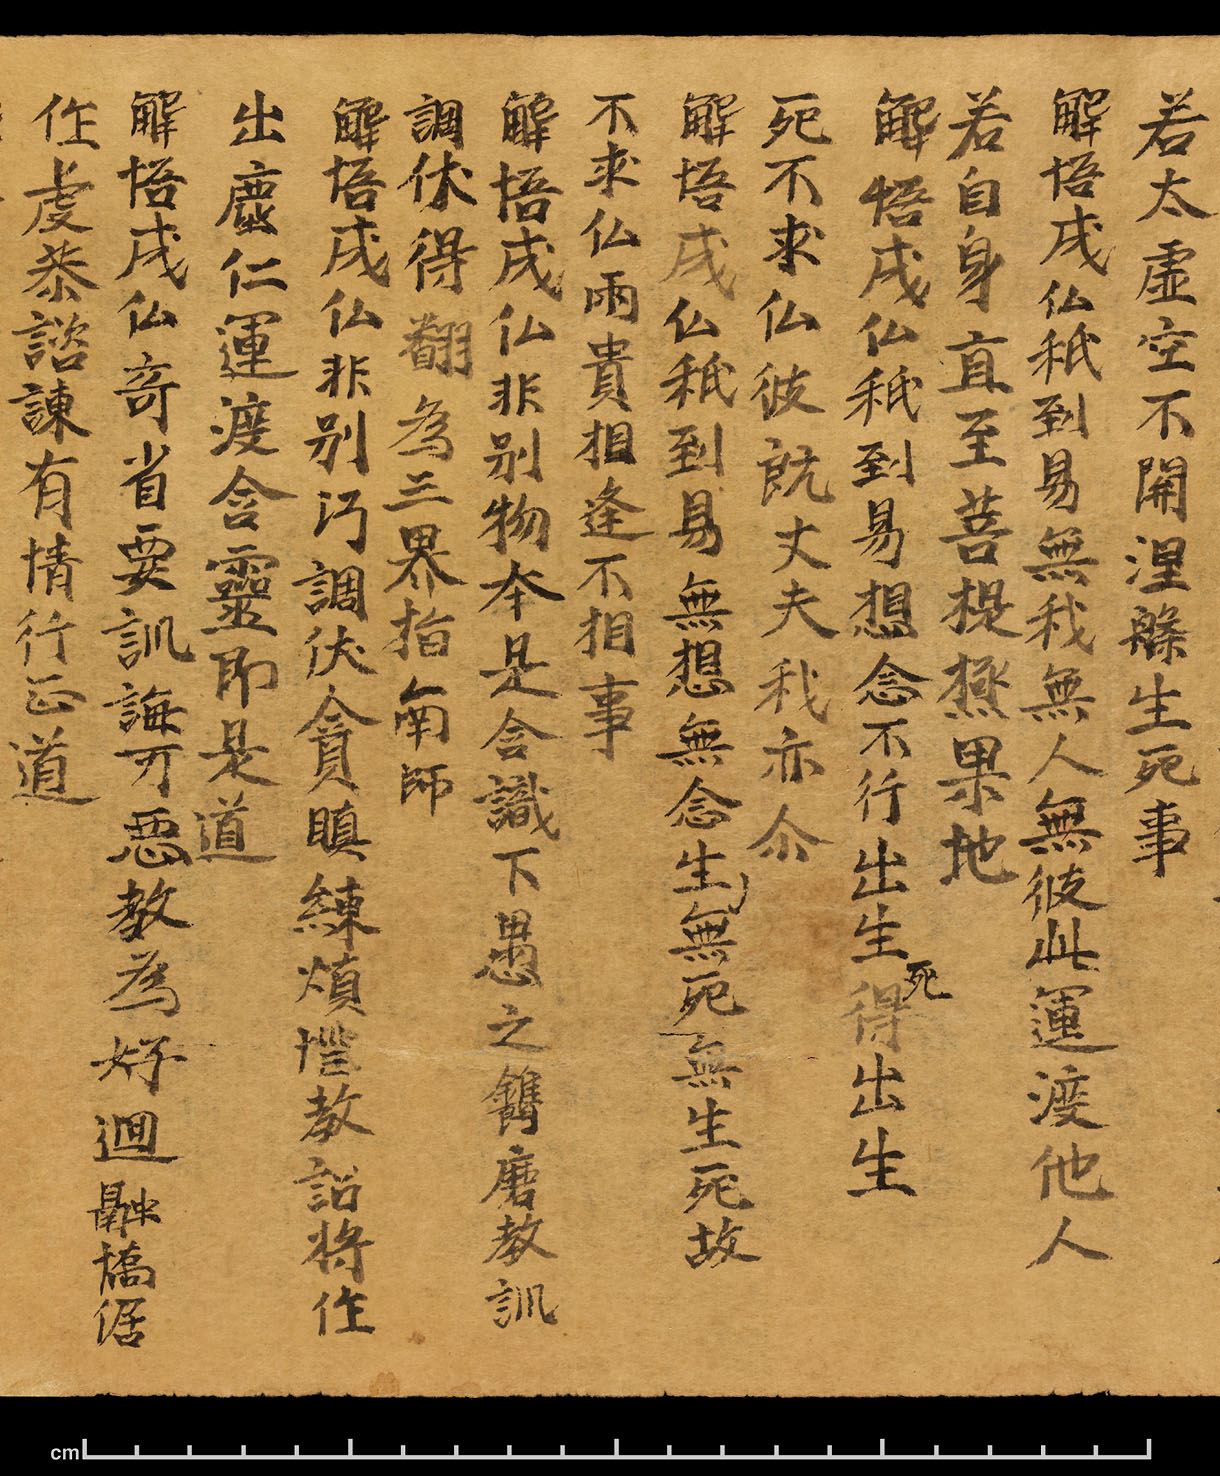 若太虛空不開涅槃生死事
解悟成仏秖到易無我無人無彼此運渡他人
若自身直至菩提㷩果地
解悟成仏秖到易想念不行出生死得出生
死不求仏彼既丈夫我亦尒
解悟成仏秖到易無想無念生無死無生死故
不求仏兩貴相逢不相事
解悟成仏非别物本是含識下愚之鐫磨教訓
調伏得翻為三界指南師
解悟成仏非别巧調伏貪瞋練煩惱教詔将作
出塵仁運渡含靈即是道
解悟成仏奇省要訓誨可惡教為好迴融憍倨
作虔恭諮諫有情行正道